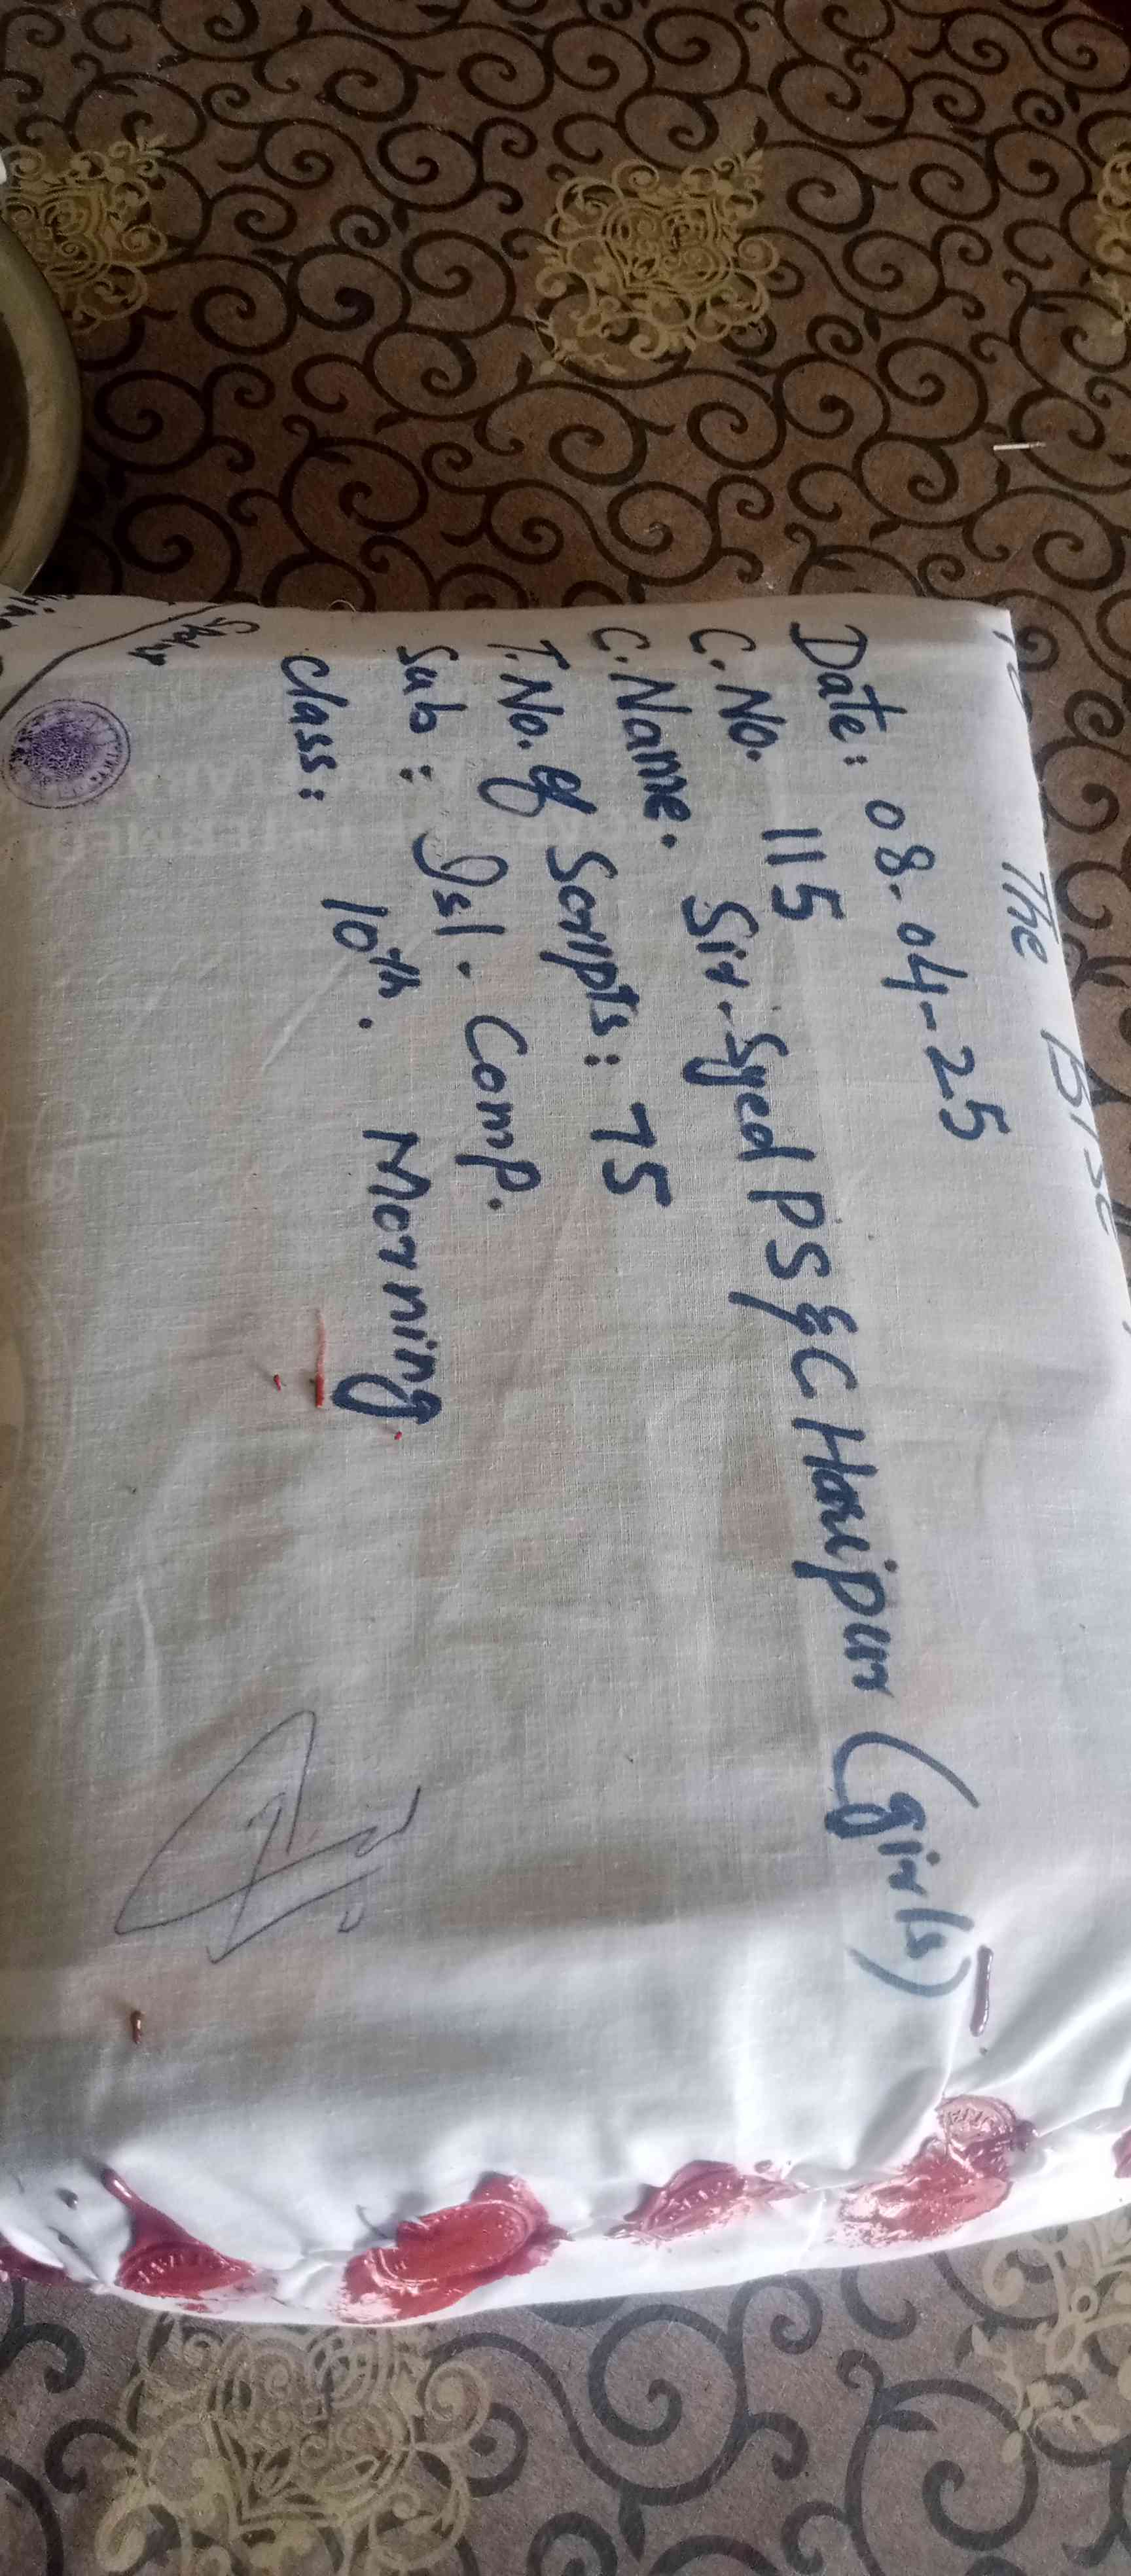 The BISE
Date: 08-04-25
C.No. 115
C.Name. Sir Syed PS&C Haripur (girls)
T.No. of Scripts: 75
Sub: Isl. Comp.
class: 10th. Morning